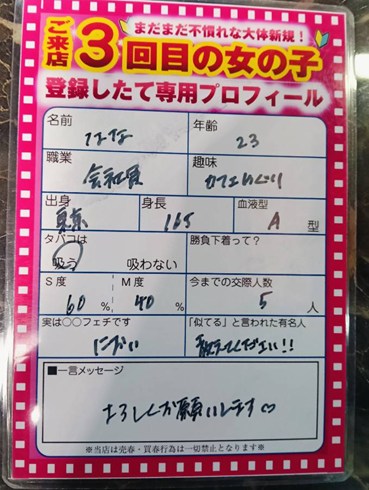 まだまだ不慣れな大体新規！
ご来店3回目の女の子
登録したて専用プロフィール
名前 なな 年齢 23
職業 会社員 趣味 カフェめぐり
出身 東京 身長 165 血液型 A 型
タバコは 吸う 吸わない 勝負下着って？
S度 60 % M度 40 % 今までの交際人数 5 人
実は○○フェチです においい 「似てる」と言われた有名人 教えてください!!
■一言メッセージ
よろしくお願いします♡
※当店は売春・買春行為は一切禁止となります※